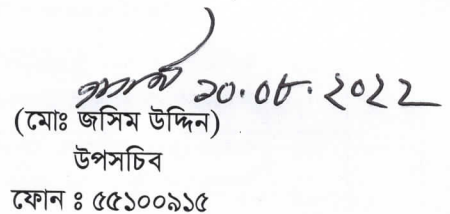 ২০.০৮.২০২২
(মোঃ জসিম উদ্দিন)
উপসচিব
ফোন ঃ ৫৫১০০৯১৫